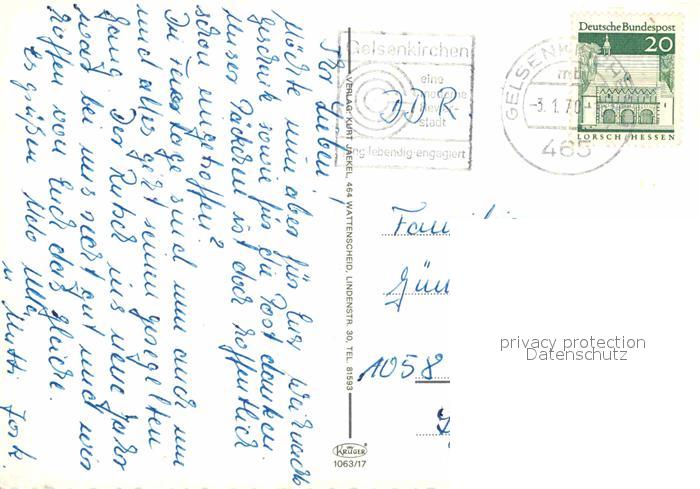 Ihr Lieben!
Möchte nun aber für Eure
geschenk sowie für die Post danken
Unser Päckchen ist doch hoffentlich
schon eingetroffen?
Die Feiertage sind nun auch um
und alles geht seinen geregelten
Gang. Der Rutsch ins neue Jahr
war bei uns sehr gut und wir
hoffen von Euch das gleiche.
Es grüßen
u. Mutti
VERLAG KURT JAEKEL, 464 WATTENSCHEID, LINDENSTR. 30, TEL. 81593
Gelsenkirchen
eine
moderne
stadt
jung-lebendig-engagiert
DDR.
GELSENKIRCHEN
-3.1.70
465
Deutsche Bundespost
20
LORSCH/HESSEN
Fam
Gün
1058
KRÜGER
1063/17
privacy protection
Datenschutz